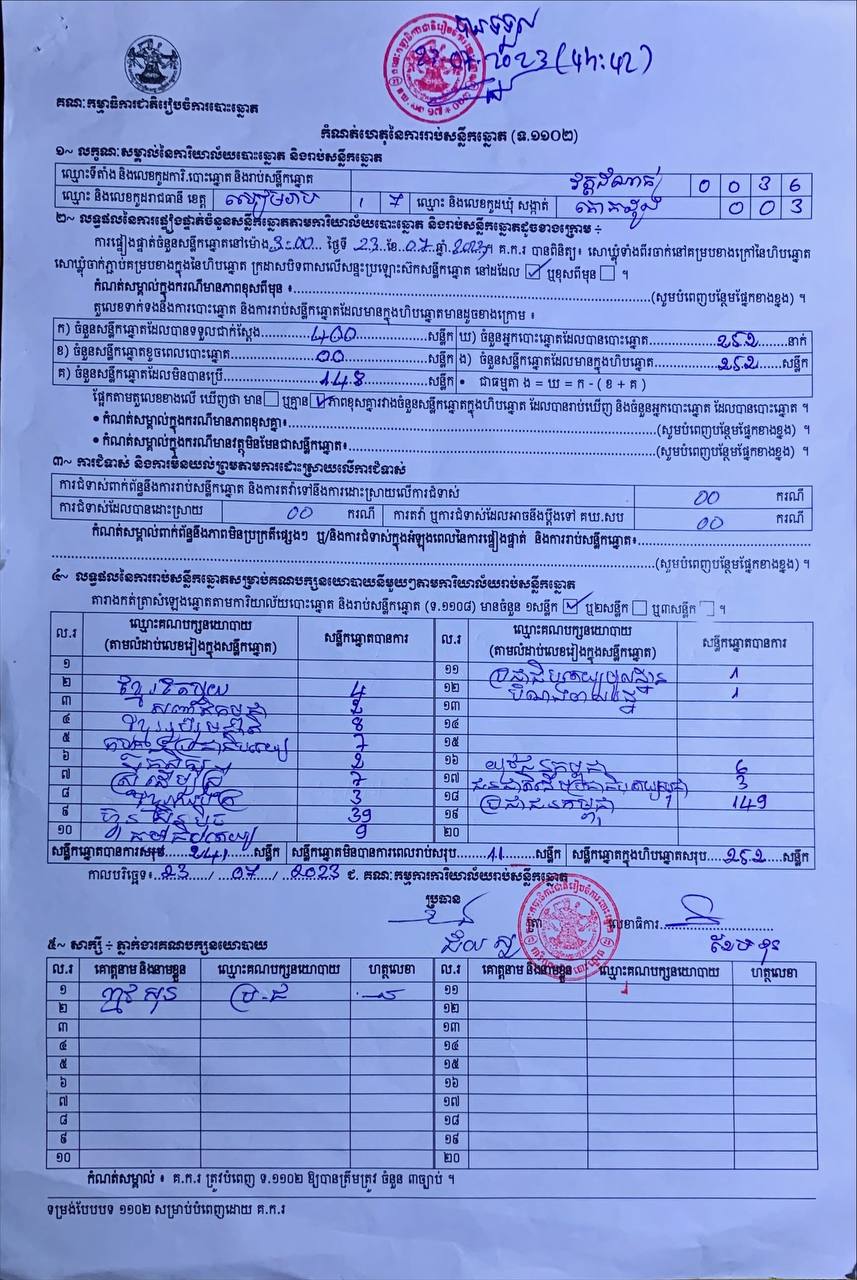 បានទទួល
23.07.2023 (4h:42)
គណៈកម្មាធិការជាតិរៀបចំការបោះឆ្នោត
កំណត់ហេតុនៃការរាប់សន្លឹកឆ្នោត (ទ.១១០២)
១~ លក្ខណៈសម្គាល់នៃការិយាល័យបោះឆ្នោត និងរាប់សន្លឹកឆ្នោត
ឈ្មោះទីតាំង និងលេខកូដការិ.បោះឆ្នោត និងរាប់សន្លឹកឆ្នោត វត្តដំណាក់ 0 0 3 6
ឈ្មោះ និងលេខកូដរាជធានី ខេត្ត សៀមរាប 1 7 ឈ្មោះ និងលេខកូដឃុំ សង្កាត់ គោកដូង 0 0 3
២~ លទ្ធផលនៃការផ្ទៀងផ្ទាត់ចំនួនសន្លឹកឆ្នោតតាមការិយាល័យបោះឆ្នោត និងរាប់សន្លឹកឆ្នោតដូចខាងក្រោម ÷
ការផ្ទៀងផ្ទាត់ចំនួនសន្លឹកឆ្នោតនៅម៉ោង 3:00 ថ្ងៃទី 23 ខែ 07 ឆ្នាំ 2023 គ.ក.រ បានពិនិត្យ៖ សោឃ្លុំទាំងពីរចាក់នៅគម្របខាងក្រៅនៃហិបឆ្នោត
សោឃ្លុំចាក់ភ្ជាប់គម្របខាងក្នុងនៃហិបឆ្នោត ក្រដាសបិទពាសលើសន្ទះប្រឡោះស៊កសន្លឹកឆ្នោត នៅដដែល ☑ ឬខុសពីមុន ☐ ។
កំណត់សម្គាល់ក្នុងករណីមានភាពខុសពីមុន ៖ (សូមបំពេញបន្ថែមផ្នែកខាងខ្នង) ។
តួលេខទាក់ទងនឹងការបោះឆ្នោត និងការរាប់សន្លឹកឆ្នោតដែលមានក្នុងហិបឆ្នោតមានដូចខាងក្រោម ៖
ក) ចំនួនសន្លឹកឆ្នោតដែលបានទទួលជាក់ស្តែង 400 សន្លឹក ឃ) ចំនួនអ្នកបោះឆ្នោតដែលបានបោះឆ្នោត 252 នាក់
ខ) ចំនួនសន្លឹកឆ្នោតខូចពេលបោះឆ្នោត 00 សន្លឹក ង) ចំនួនសន្លឹកឆ្នោតដែលមានក្នុងហិបឆ្នោត 252 សន្លឹក
គ) ចំនួនសន្លឹកឆ្នោតដែលមិនបានប្រើ 148 សន្លឹក • ជាធម្មតា ង = ឃ = ក - ( ខ + គ )
ផ្អែកតាមតួលេខខាងលើ ឃើញថា មាន ☐ ឬគ្មាន ☑ ភាពខុសគ្នារវាងចំនួនសន្លឹកឆ្នោតក្នុងហិបឆ្នោត ដែលបានរាប់ឃើញ និងចំនួនអ្នកបោះឆ្នោត ដែលបានបោះឆ្នោត ។
• កំណត់សម្គាល់ក្នុងករណីមានភាពខុសគ្នា៖ (សូមបំពេញបន្ថែមផ្នែកខាងខ្នង) ។
• កំណត់សម្គាល់ក្នុងករណីមានវត្ថុមិនមែនជាសន្លឹកឆ្នោត៖ (សូមបំពេញបន្ថែមផ្នែកខាងខ្នង) ។
៣~ ការជំទាស់ និងការមិនយល់ព្រមតាមការដោះស្រាយលើការជំទាស់
ការជំទាស់ពាក់ព័ន្ធនឹងការរាប់សន្លឹកឆ្នោត និងការតវ៉ាទៅនឹងការដោះស្រាយលើការជំទាស់ 00 ករណី
ការជំទាស់ដែលបានដោះស្រាយ 00 ករណី ការតវ៉ា ឬការជំទាស់ដែលអាចនឹងប្តឹងទៅ គឃ.សប 00 ករណី
កំណត់សម្គាល់ពាក់ព័ន្ធនឹងភាពមិនប្រក្រតីផ្សេងៗ ឬ/និងការជំទាស់ក្នុងអំឡុងពេលនៃការផ្ទៀងផ្ទាត់ និងការរាប់សន្លឹកឆ្នោត៖
(សូមបំពេញបន្ថែមផ្នែកខាងខ្នង) ។
៤~ លទ្ធផលនៃការរាប់សន្លឹកឆ្នោតសម្រាប់គណបក្សនយោបាយនីមួយៗតាមការិយាល័យរាប់សន្លឹកឆ្នោត
តារាងកត់ត្រាសំឡេងឆ្នោតតាមការិយាល័យបោះឆ្នោត និងរាប់សន្លឹកឆ្នោត (ទ.១១០៨) មានចំនួន ១សន្លឹក ☑ ឬ២សន្លឹក ☐ ឬ៣សន្លឹក ☐ ។
ល.រ ឈ្មោះគណបក្សនយោបាយ (តាមលំដាប់លេខរៀងក្នុងសន្លឹកឆ្នោត) សន្លឹកឆ្នោតបានការ ល.រ ឈ្មោះគណបក្សនយោបាយ (តាមលំដាប់លេខរៀងក្នុងសន្លឹកឆ្នោត) សន្លឹកឆ្នោតបានការ
១ ១១ ប្រជាធិបតេយ្យមូលដ្ឋាន 1
២ ខ្មែរតែមួយ 4 ១២ 1
៣ សញ្ជាតិកម្ពុជា 2 ១៣
៤ ខ្មែររួបរួមជាតិ 8 ១៤
៥ 7 ១៥
៦ 2 ១៦ យុវជនកម្ពុជា 6
៧ ស្ត្រីដើម្បីស្ត្រី 7 ១៧ ជនជាតិដើមប្រជាធិបតេយ្យកម្ពុជា 3
៨ 3 ១៨ ប្រជាជនកម្ពុជា 149
៩ ហ៊្វុនស៊ិនប៉ិច 39 ១៩
១០ ធម្មាធិបតេយ្យ 9 ២០
សន្លឹកឆ្នោតបានការសរុប 241 សន្លឹក សន្លឹកឆ្នោតមិនបានការពេលរាប់សរុប 11 សន្លឹក សន្លឹកឆ្នោតក្នុងហិបឆ្នោតសរុប 252 សន្លឹក
កាលបរិច្ឆេទ៖ 23 / 07 / 2023 ជ. គណៈកម្មការការិយាល័យរាប់សន្លឹកឆ្នោត
ប្រធាន លេខាធិការ
៥~ សាក្សី ÷ ភ្នាក់ងារគណបក្សនយោបាយ
ល.រ គោត្តនាម និងនាមខ្លួន ឈ្មោះគណបក្សនយោបាយ ហត្ថលេខា ល.រ គោត្តនាម និងនាមខ្លួន ឈ្មោះគណបក្សនយោបាយ ហត្ថលេខា
១ ប្រ.ជ ១១
២ ១២
៣ ១៣
៤ ១៤
៥ ១៥
៦ ១៦
៧ ១៧
៨ ១៨
៩ ១៩
១០ ២០
កំណត់សម្គាល់ ៖ គ.ក.រ ត្រូវបំពេញ ទ.១១០២ ឱ្យបានត្រឹមត្រូវ ចំនួន ៣ច្បាប់ ។
ទម្រង់បែបបទ ១១០២ សម្រាប់បំពេញដោយ គ.ក.រ